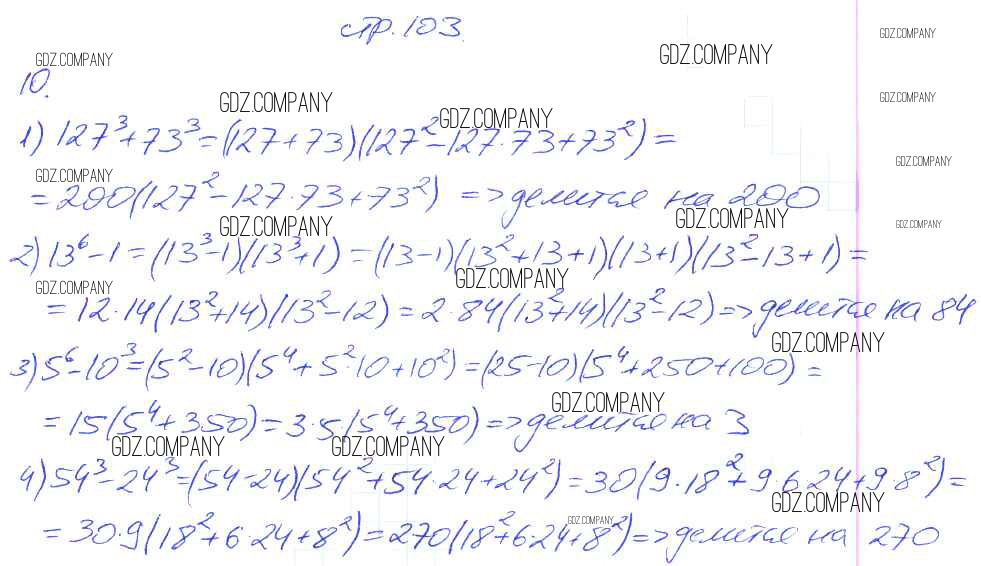 стр. 103.
GDZ.COMPANY
GDZ.COMPANY
GDZ.COMPANY
10.
GDZ.COMPANY
GDZ.COMPANY
GDZ.COMPANY
1) 127³+73³=(127+73)(127²-127·73+73²)=
GDZ.COMPANY
GDZ.COMPANY
=200(127²-127·73+73²) => делится на 200
GDZ.COMPANY
GDZ.COMPANY
GDZ.COMPANY
2) 13⁶-1=(13³-1)(13³+1)=(13-1)(13²+13+1)(13+1)(13²-13+1)=
GDZ.COMPANY
GDZ.COMPANY
=12·14(13²+14)(13²-12)=2·84(13²+14)(13²-12)=>делится на 84
GDZ.COMPANY
3) 5⁶-10³=(5²-10)(5⁴+5²·10+10²)=(25-10)(5⁴+250+100)=
GDZ.COMPANY
=15(5⁴+350)=3·5(5⁴+350)=>делится на 3
GDZ.COMPANY
GDZ.COMPANY
4) 54³-24³=(54-24)(54²+54·24+24²)=30(9·18²+9·6·24+9·8²)=
GDZ.COMPANY
GDZ.COMPANY
=30·9(18²+6·24+8²)=270(18²+6·24+8²)=>делится на 270